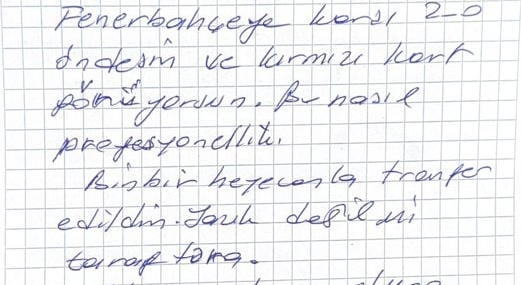 Fenerbahçeye karşı 2-0
öndesin ve kırmızı kart
görüyorsun. Bu nasıl
profesyonellik.
Binbir heyecanla tranfer
edildin. Yazık değil mi
taraftara.